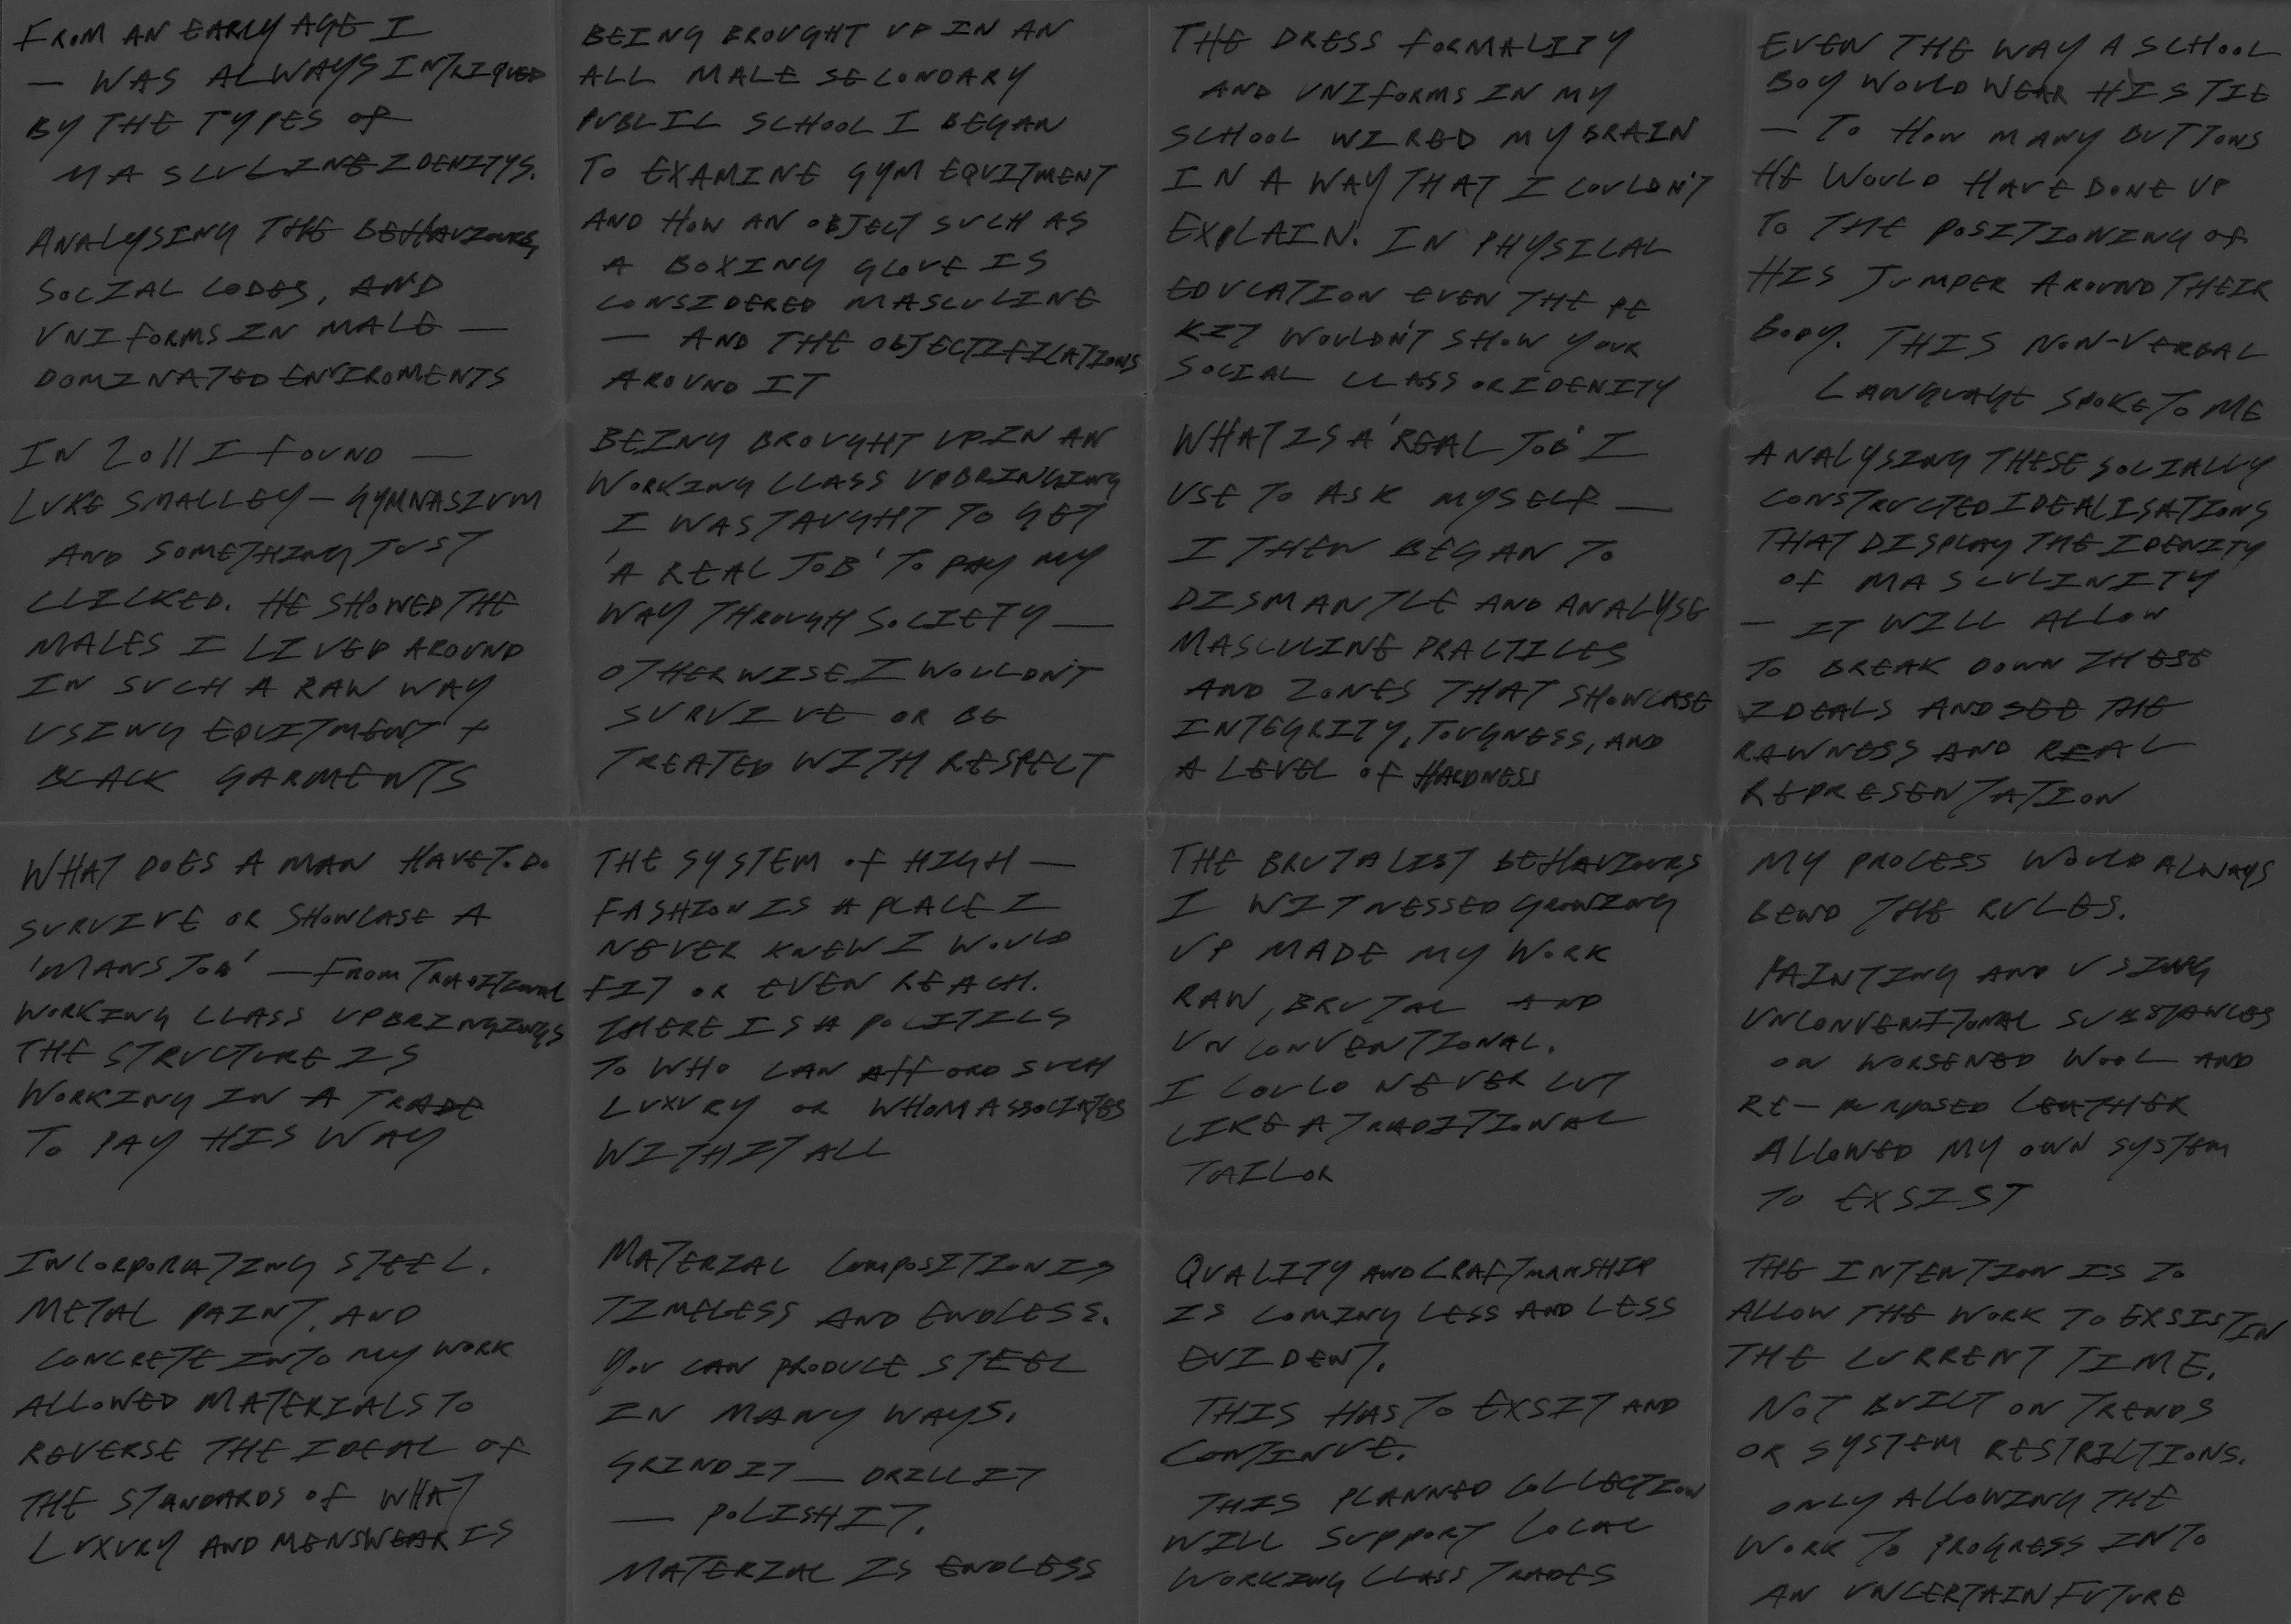 FROM AN EARLY AGE I
— WAS ALWAYS INTRIQUED
BY THE TYPES OF
MASCULINE IDENITYS.
ANALYSING THE BEHAVIOURS,
SOCIAL CODES, AND
UNIFORMS IN MALE —
DOMINATED ENVIROMENTS
BEING BROUGHT UP IN AN
ALL MALE SECONDARY
PUBLIC SCHOOL I BEGAN
TO EXAMINE GYM EQUITMENT
AND HOW AN OBJECT SUCH AS
A BOXING GLOVE IS
CONSIDERED MASCULINE
— AND THE OBJECTIFICATIONS
AROUND IT
THE DRESS FORMALITY
AND UNIFORMS IN MY
SCHOOL WIRED MY BRAIN
IN A WAY THAT I COULDN'T
EXPLAIN. IN PHYSICAL
EDUCATION EVEN THE PE
KIT WOULDN'T SHOW YOUR
SOCIAL CLASS OR IDENITY
EVEN THE WAY A SCHOOL
BOY WOULD WEAR HIS TIE
— TO HOW MANY BUTTONS
HE WOULD HAVE DONE UP
TO THE POSITIONING OF
HIS JUMPER AROUND THEIR
BODY. THIS NON-VERBAL
LANGUAGE SPOKE TO ME
IN 2011 I FOUND —
LUKE SMALLEY — GYMNASIUM
AND SOMETHING JUST
CLICKED. HE SHOWED THE
MALES I LIVED AROUND
IN SUCH A RAW WAY
USING EQUITMENT +
BLACK GARMENTS
BEING BROUGHT UP IN AN
WORKING CLASS UPBRINGING
I WAS TAUGHT TO GET
'A REAL JOB' TO PAY MY
WAY THROUGH SOCIETY —
OTHERWISE I WOULDN'T
SURVIVE OR BE
TREATED WITH RESPECT
WHAT IS A 'REAL JOB' I
USE TO ASK MYSELF —
I THEN BEGAN TO
DISMANTLE AND ANALYSE
MASCULINE PRACTICES
AND ZONES THAT SHOWCASE
INTEGRITY, TOUGNESS, AND
A LEVEL OF HARDNESS
ANALYSING THESE SOCIALLY
CONSTRUCTED IDEALISATIONS
THAT DISPLAY THE IDENITY
OF MASCULINITY
— IT WILL ALLOW
TO BREAK DOWN THESE
IDEALS AND SEE THE
RAWNESS AND REAL
REPRESENTATION
WHAT DOES A MAN HAVE TO DO
SURVIVE OR SHOWCASE A
'MANS JOB' — FROM TRADITIONAL
WORKING CLASS UPBRINGINGS
THE STRUCTURE IS
WORKING IN A TRADE
TO PAY HIS WAY
THE SYSTEM OF HIGH —
FASHION IS A PLACE I
NEVER KNEW I WOULD
FIT OR EVEN REACH.
THERE IS A POLITICS
TO WHO CAN AFFORD SUCH
LUXURY OR WHOM ASSOCIATES
WITH IT ALL
THE BRUTALIST BEHAVIOURS
I WITNESSED GROWING
UP MADE MY WORK
RAW, BRUTAL AND
UNCONVENTIONAL.
I COULD NEVER CUT
LIKE A TRADITIONAL
TAILOR
MY PROCESS WOULD ALWAYS
BEND THE RULES.
PAINTING AND USING
UNCONVENITONAL SUBSTANCES
ON WORSENED WOOL AND
RE-PURPOSED LEATHER
ALLOWED MY OWN SYSTEM
TO EXSIST
INCORPORATING STEEL.
METAL PAINT, AND
CONCRETE INTO MY WORK
ALLOWED MATERIALS TO
REVERSE THE IDEAL OF
THE STANDARDS OF WHAT
LUXURY AND MENSWEAR IS
MATERIAL COMPOSITION IS
TIMELESS AND ENDLESS.
YOU CAN PRODUCE STEEL
IN MANY WAYS.
GRIND IT — DRILL IT
— POLISH IT.
MATERIAL IS ENDLESS
QUALITY AND CRAFTMANSHIP
IS COMING LESS AND LESS
EVIDENT.
THIS HAS TO EXSIT AND
CONTINUE.
THIS PLANNED COLLECTION
WILL SUPPORT LOCAL
WORKING CLASS TRADES
THE INTENTION IS TO
ALLOW THE WORK TO EXSIST IN
THE CURRENT TIME.
NOT BUILT ON TRENDS
OR SYSTEM RESTRICTIONS.
ONLY ALLOWING THE
WORK TO PROGRESS INTO
AN UNCERTAIN FUTURE